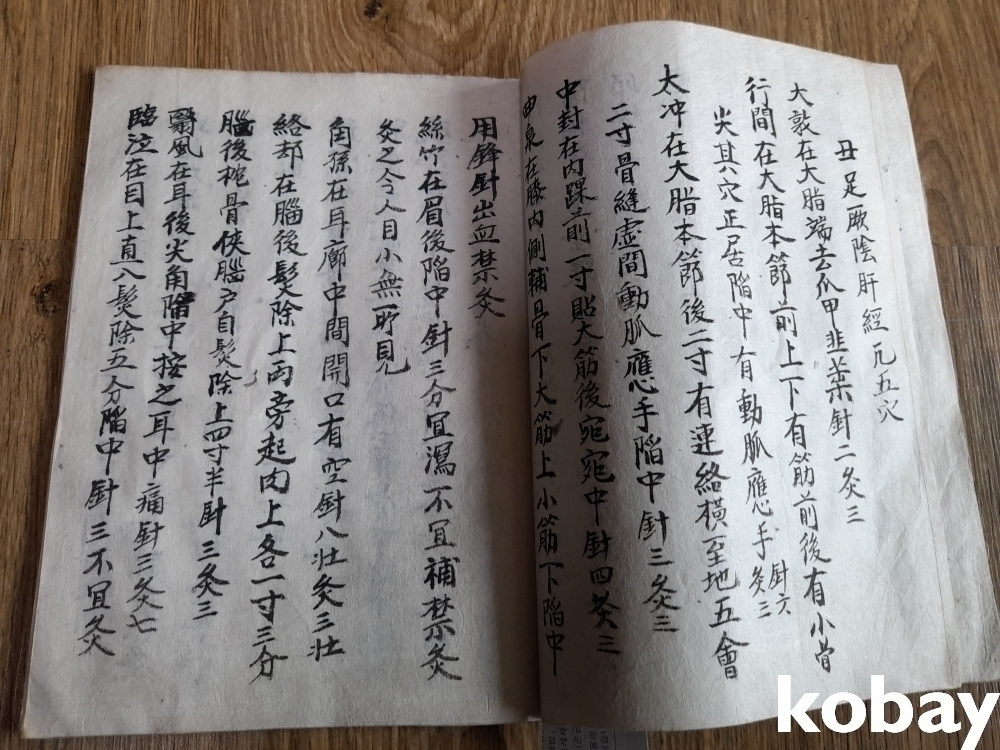 丑足厥陰肝經凡五穴
大敦在大脂端去爪甲韭葉針二灸三
行間在大脂本節前上下有筋前後有小骨
尖其穴正居陷中有動脈應手針六灸三
太冲在大脂本節後二寸有連絡橫至地五會
二寸骨縫虛間動脈應手陷中針三灸三
中封在內踝前一寸貼大筋後宛宛中針四灸三
曲泉在膝內側輔骨下大筋上小筋下陷中
用鋒針出血禁灸
絲竹在眉後陷中針三分宜瀉不宜補禁灸
灸之令人目小無所見
角孫在耳廓中間開口有空針八壯灸三壯
絡却在腦後髮除上両旁起肉上各一寸三分
腦後枕骨俠腦戶自髮除上四寸半針三灸三
翳風在耳後尖角陷中按之耳中痛針三灸七
臨泣在目上直入髮除五分陷中針三不宜灸
kobay